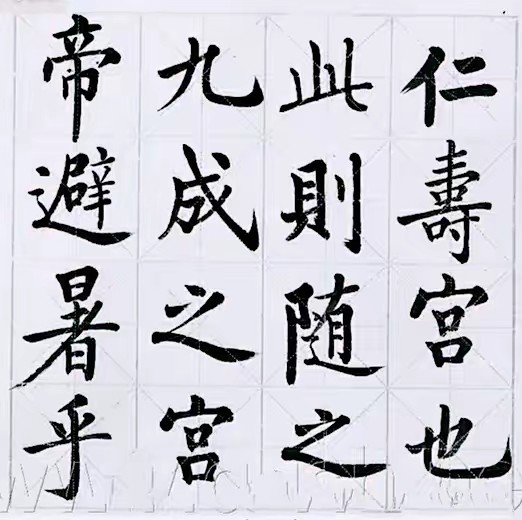 仁壽宮也
此則随之
九成之宫
帝避暑乎